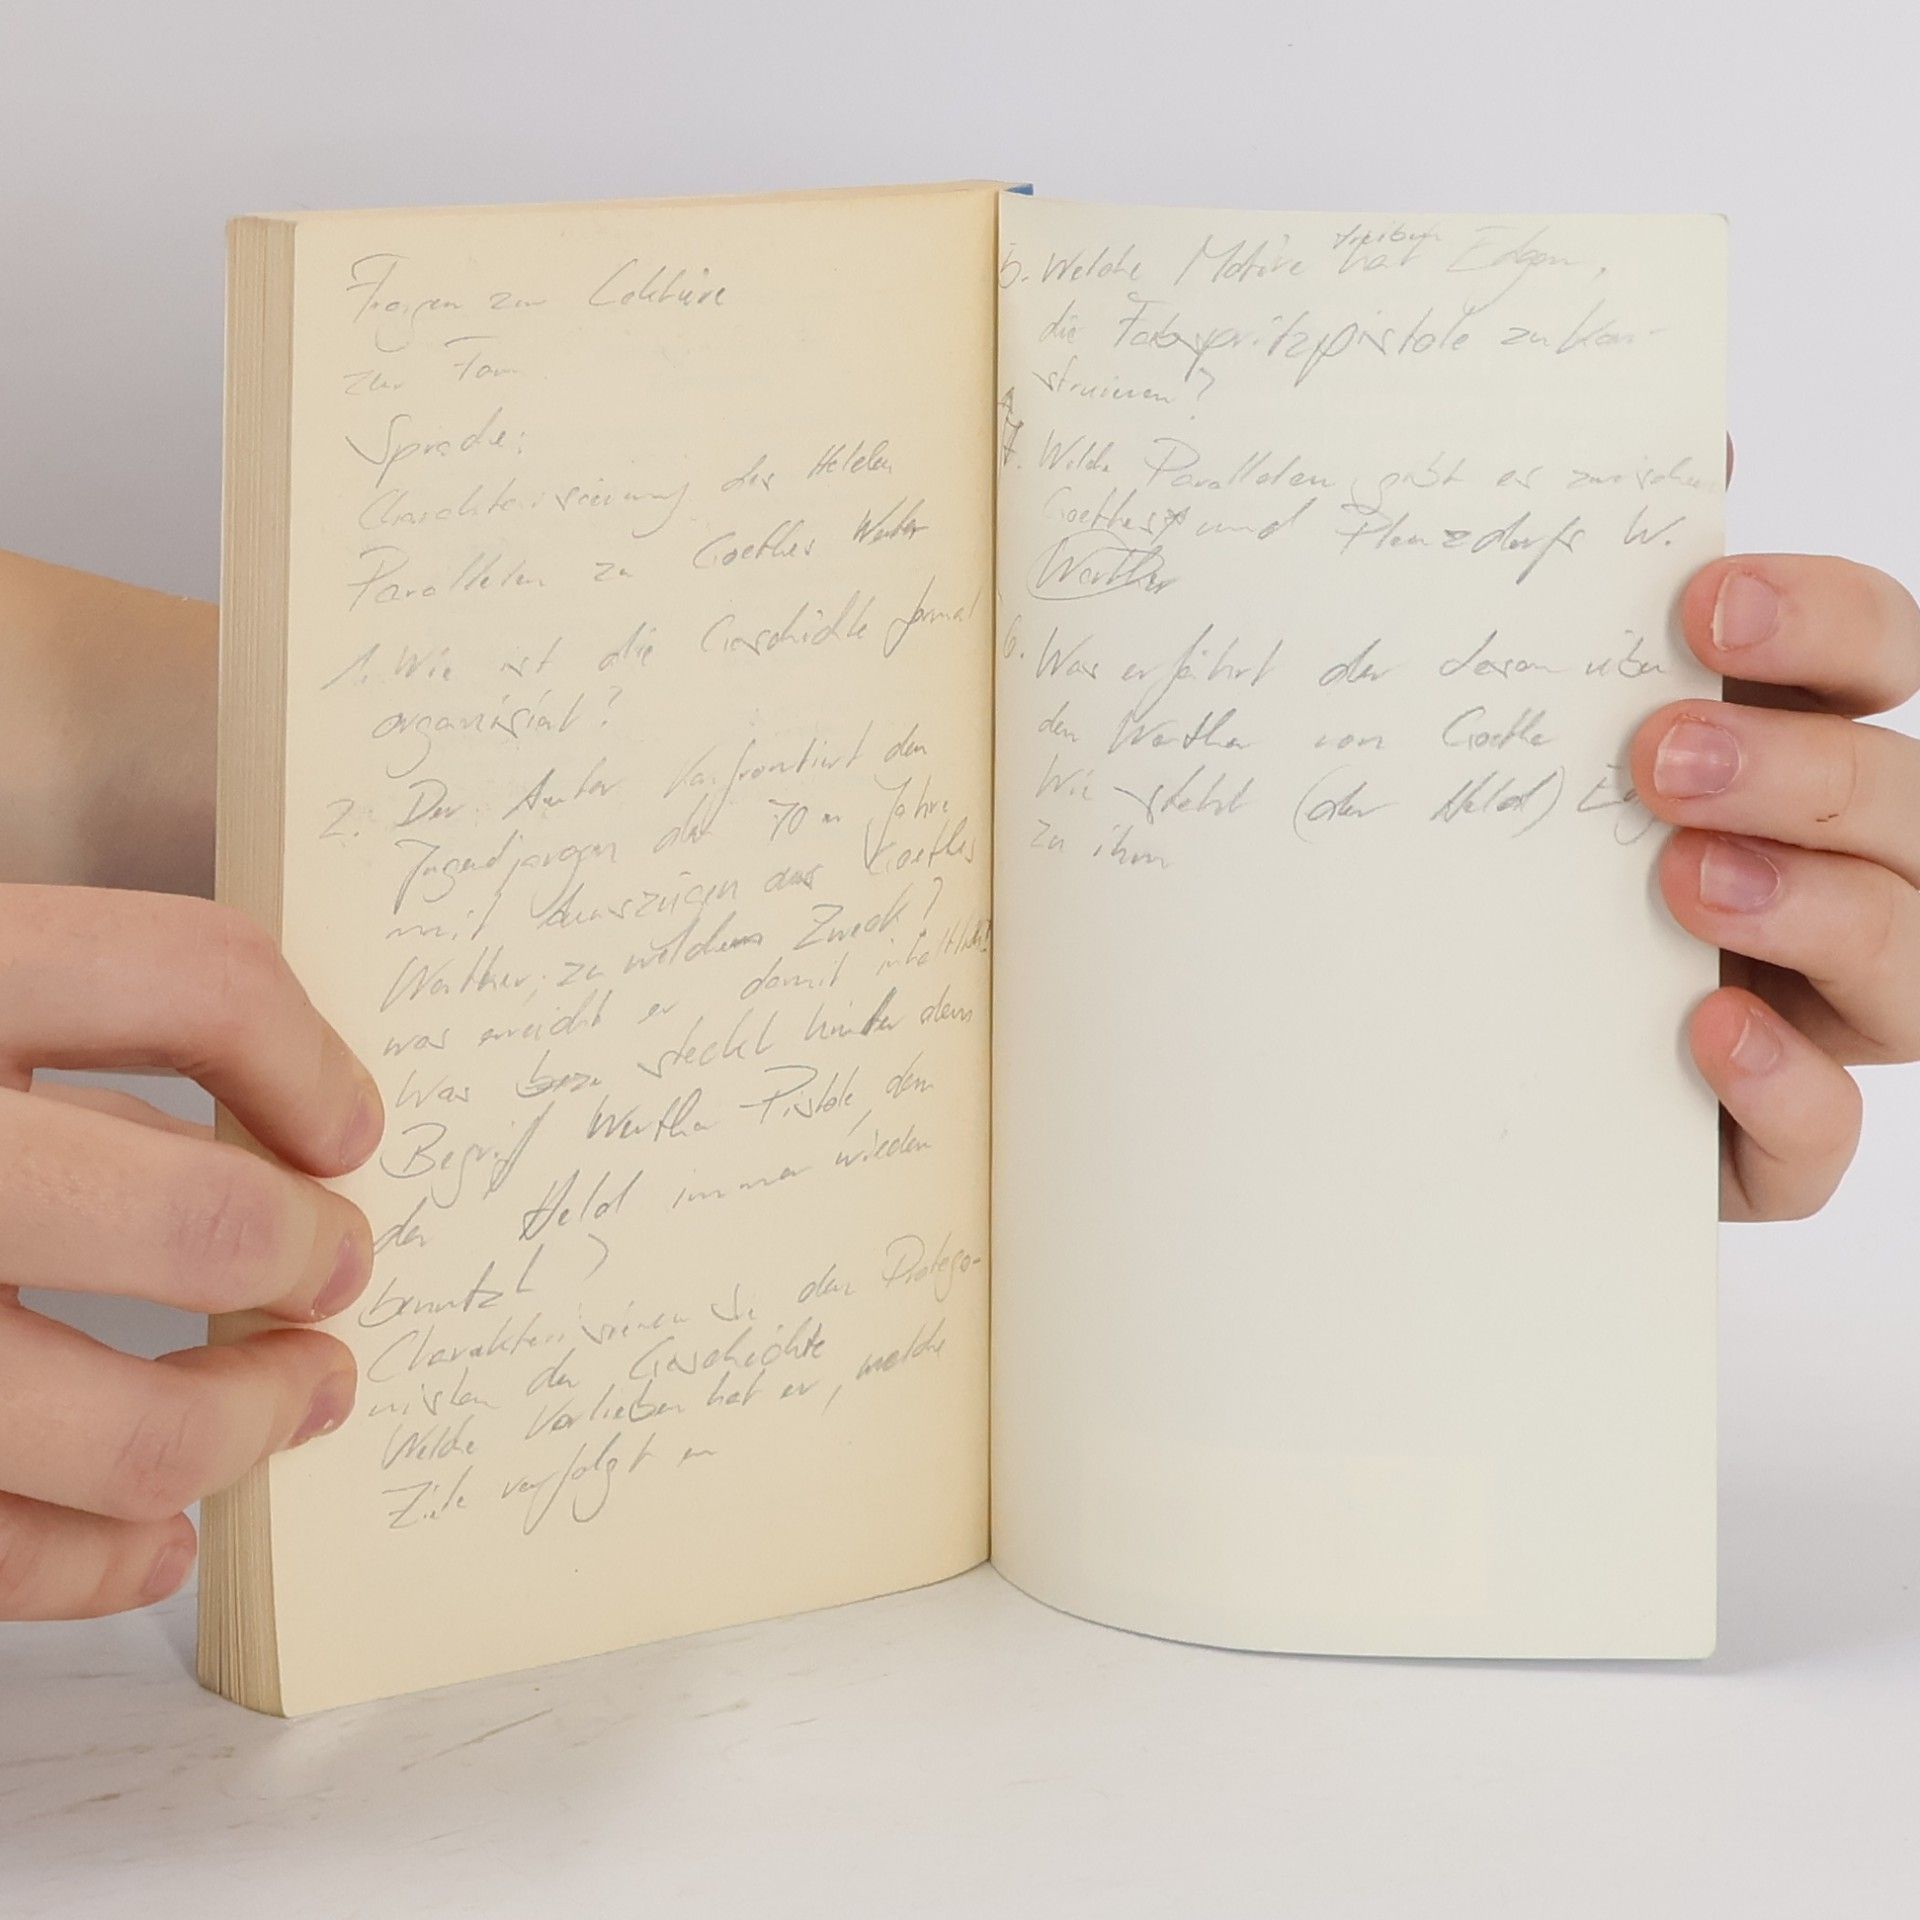 Fragen zur Lektüre
Zur Form
Sprache:
Charakterisierung des Helden
Parallelen zu Goethes Werther
1. Wie ist die Geschichte formal
organisiert?
2. Der Autor konfrontiert den
Jugendjargon der 70er Jahre
mit Auszügen aus Goethes
Werther; zu welchem Zweck?
was erreicht er damit inhaltlich?
Was steckt hinter dem
Begriff Werther Pistole, den
der Held immer wieder
benutzt?
Charakterisieren Sie den Protago-
nisten der Geschichte
Welche Vorlieben hat er, welche
Ziele verfolgt er
5. Welche Motive treiben hat Edgar,
die Farbspritzpistole zu kon-
struieren?
7. Welche Parallelen gibt es zwischen
Goethes und Plenzdorfs W.
Werther
6. Was erfährt der Leser über
den Werther von Goethe
Wie steht (der Held)
zu ihm